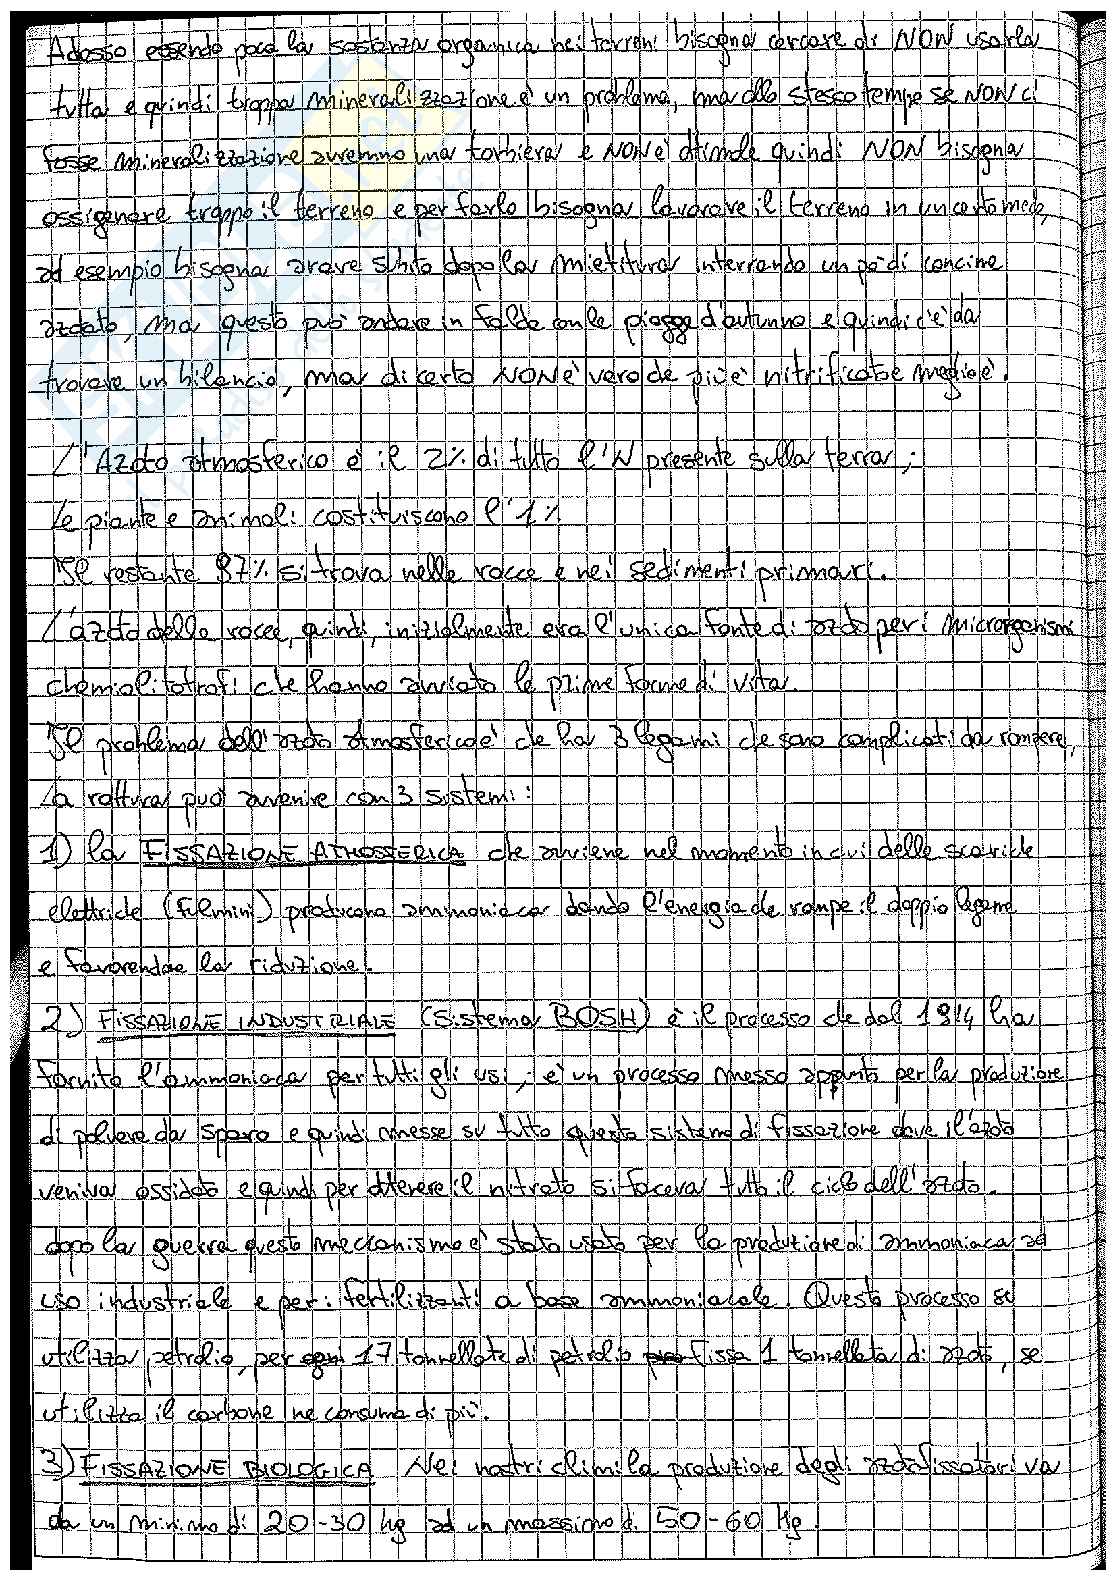 Adesso essendo poca la sostanza organica nei terreni bisogna cercare di NON usarla
tutta e quindi troppa mineralizzazione è un problema, ma allo stesso tempo se NON ci
fosse mineralizzazione avremmo una torbiera e NON è ottimale quindi NON bisogna
ossigenare troppo il terreno e per farlo bisogna lavorare il terreno in un certo modo,
ad esempio bisogna arare subito dopo la mietitura interrando un po' di concime
azotato, ma questo può andare in falda con le piogge d'autunno e quindi c'è da
trovare un bilancio, ma di certo NON è vero che più è nitrificato e meglio è.
L'Azoto atmosferico è il 2% di tutto l'N presente sulla terra;
Le piante e animali costituiscono l'1%
Il restante 97% si trova nelle rocce e nei sedimenti primari.
L'azoto delle rocce, quindi, inizialmente era l'unica fonte di azoto per i microrganismi
chemiolitotrofi che hanno avviato le prime forme di vita.
Il problema dell'azoto atmosferico è che ha 3 legami che sono complicati da rompere,
la rottura può avvenire con 3 sistemi:
1) la FISSAZIONE ATMOSFERICA che avviene nel momento in cui delle scariche
elettriche (fulmini) producono ammoniaca dando l'energia che rompe il doppio legame
e favorendone la riduzione.
2) FISSAZIONE INDUSTRIALE (Sistema BOSH) è il processo che dal 1914 ha
fornito l'ammoniaca per tutti gli usi; è un processo messo appunto per la produzione
di polvere da sparo e quindi messe su tutto questo sistema di fissazione dove l'azoto
veniva ossidato e quindi per ottenere il nitrato si faceva tutto il ciclo dell'azoto.
dopo la guerra questo meccanismo è stato usato per la produzione di ammoniaca ad
uso industriale e per i fertilizzanti a base ammoniacale. Questo processo se
utilizza petrolio, per ogni 17 tonnellate di petrolio fissa 1 tonnellata di azoto, se
utilizza il carbone ne consuma di più.
3) FISSAZIONE BIOLOGICA Nei nostri climi la produzione degli azotofissatori va
da un minimo di 20-30 kg ad un massimo di 50-60 Kg.